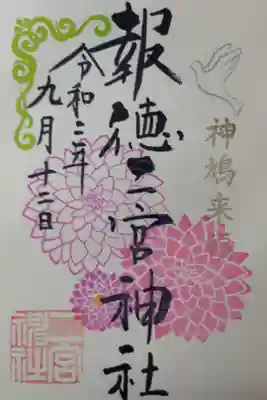 神鳩来福
報徳二宮神社
令和三年
九月十二日
二宮
神社